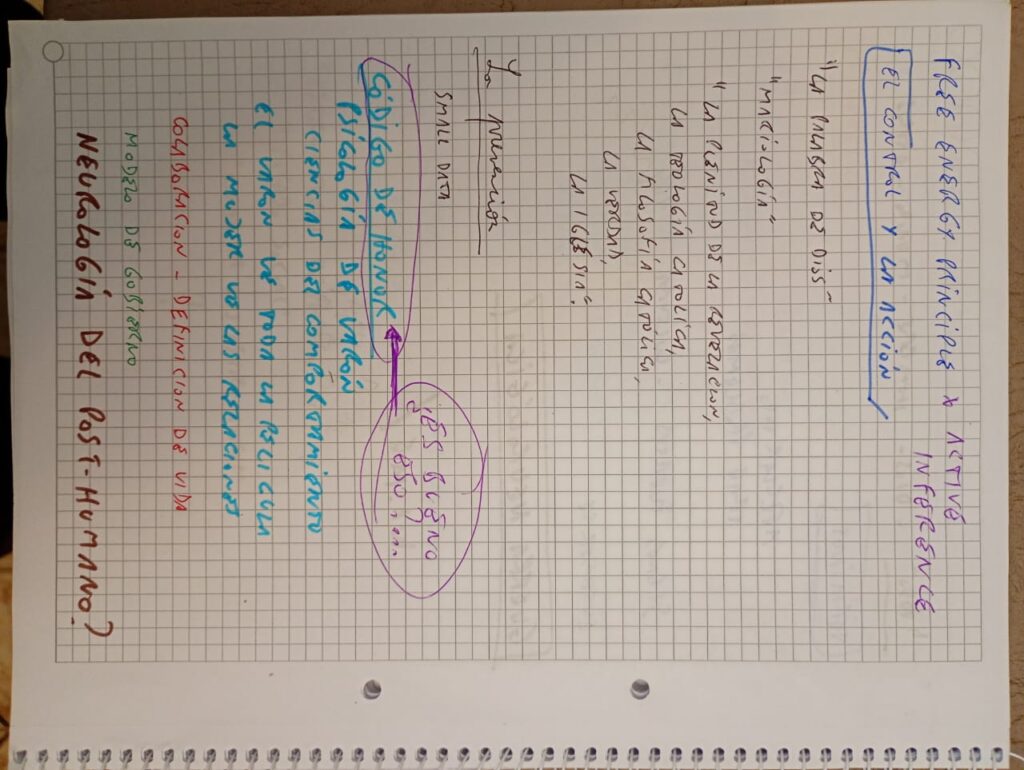 FREE ENERGY PRINCIPLE & ACTIVE
INFERENCE
EL CONTROL Y LA ACCIÓN
"LA PALABRA DE DIOS"
"MARIOLOGÍA"
"LA PLENITUD DE LA REVELACION,
LA TEOLOGÍA CATOLICA,
LA FILOSOFÍA CATÓLICA,
LA VERDAD,
LA IGLESIA".
La privación
SMALL DATA
¿ES BUENO
ESO?....
CÓDIGO DE HONOR
PSICOLOGÍA DE VARÓN
CIENCIAS DEL COMPORTAMIENTO
EL VARON VE TODA LA PELICULA
LA MUJER VE LAS RELACIONES
COLABORACION - DEFINICION DE VIDA
MODELO DE GOBIERNO
NEUROLOGÍA DEL POST-HUMANO?